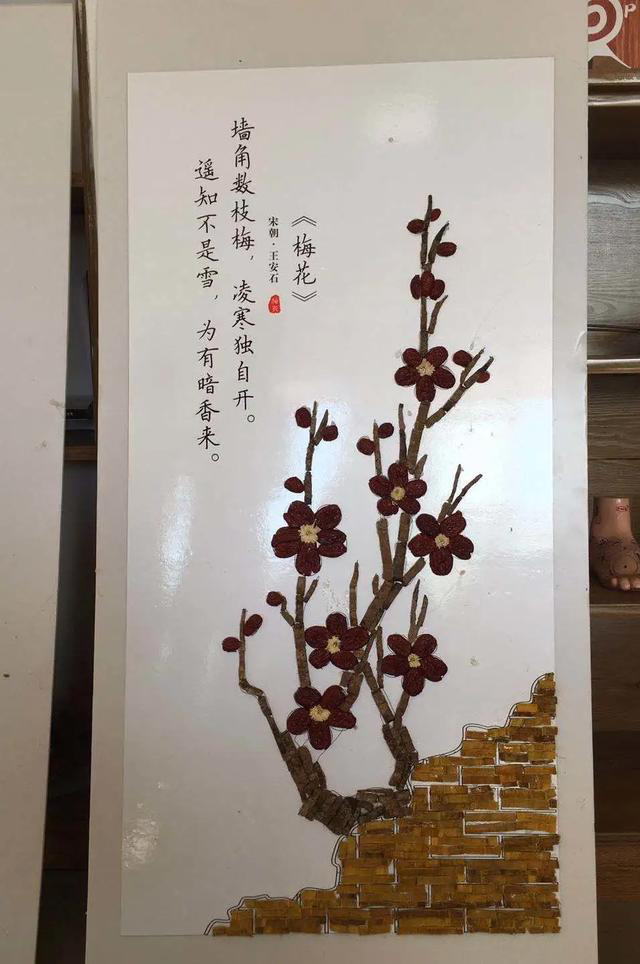 《梅花》
宋朝·王安石
墙角数枝梅，凌寒独自开。
遥知不是雪，为有暗香来。